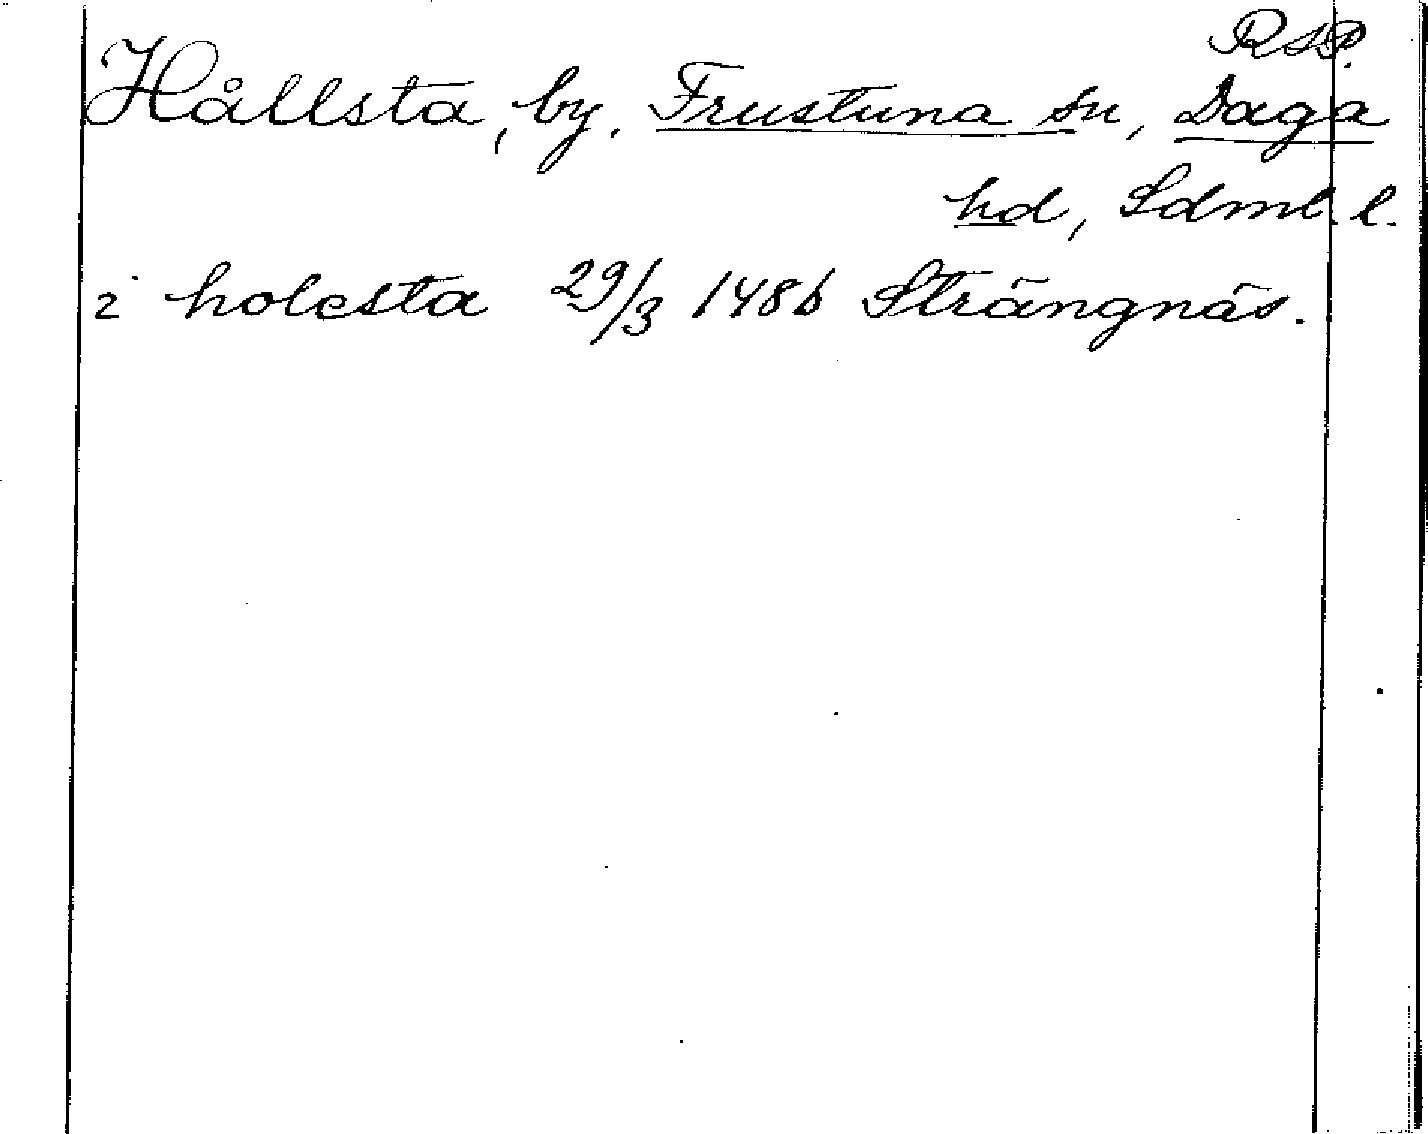 RAP.
Hållsta, by. Frustuna sn, Daga
hd, Sdml. l.
i holesta 29/3 1486 Strängnäs.